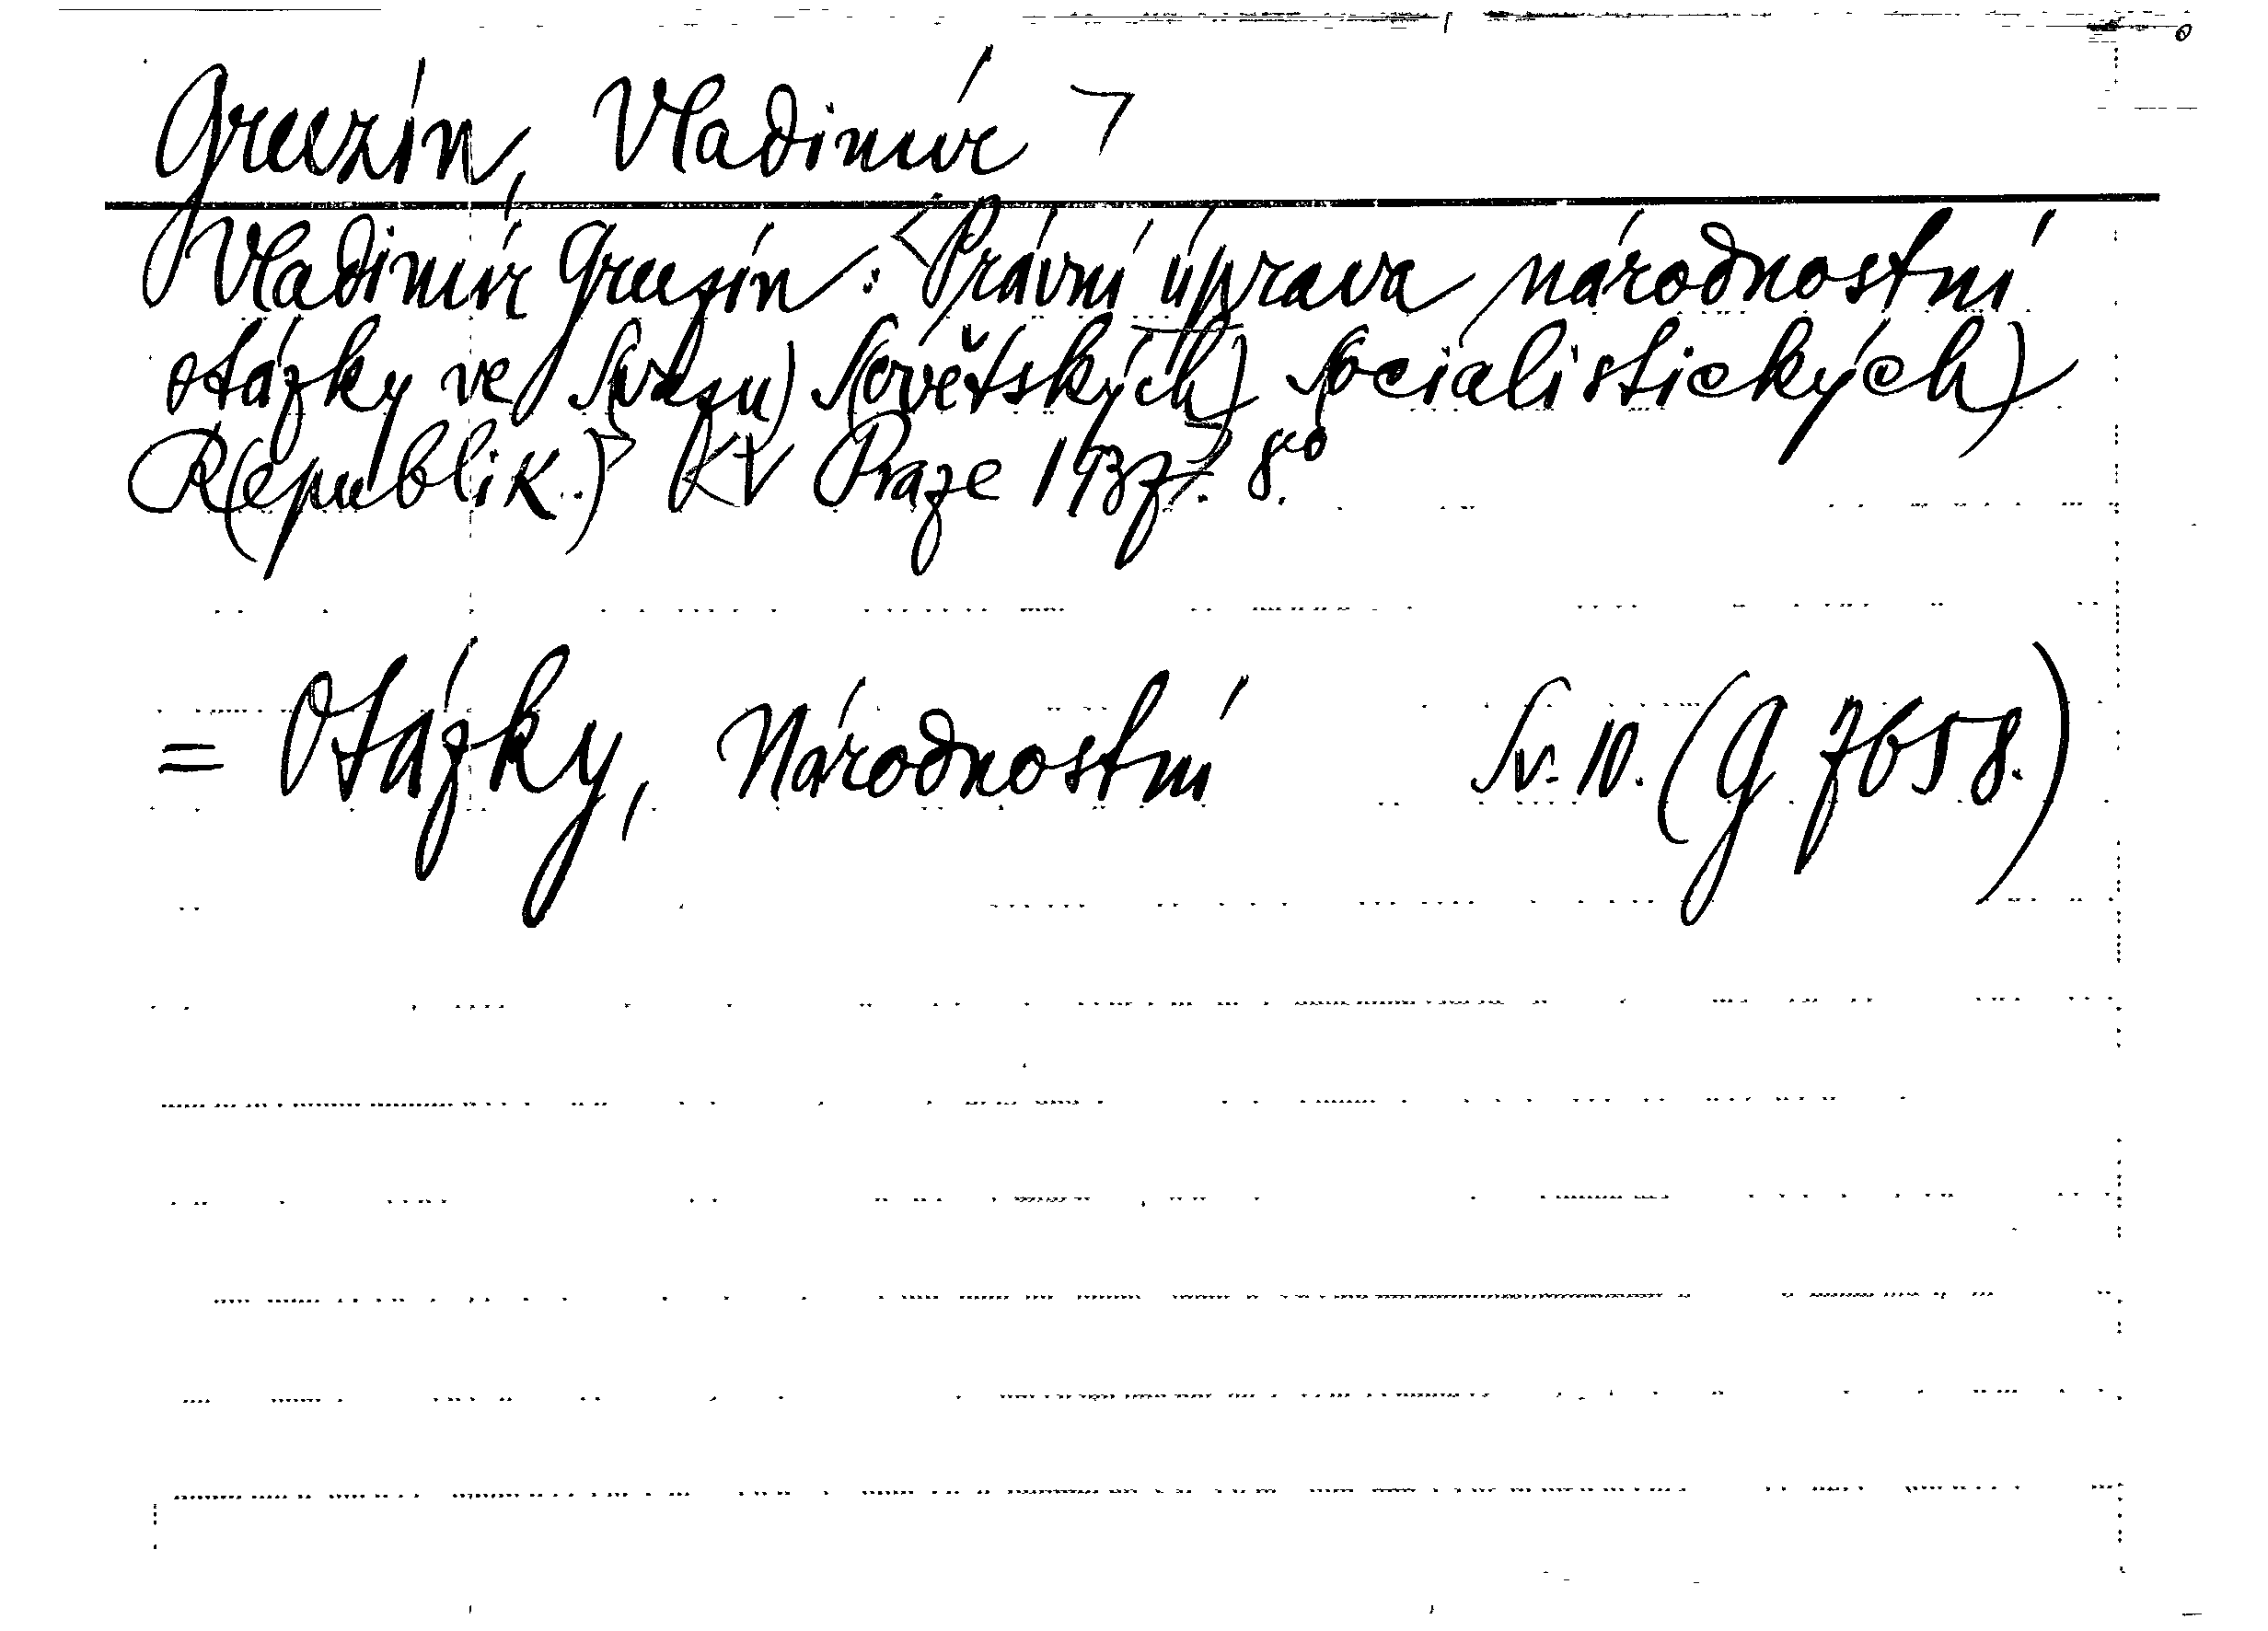 Gruzín, Vladimír ¬
Vladimír Gruzín: <Právní úprava národnostní
otázky ve S(vazu) S(ovětských) S(ocialistických)
R(epublik.)> <V Praze 1937>. 8.°
= Otázky, Národnostní Sv. 10. (G 7658.)